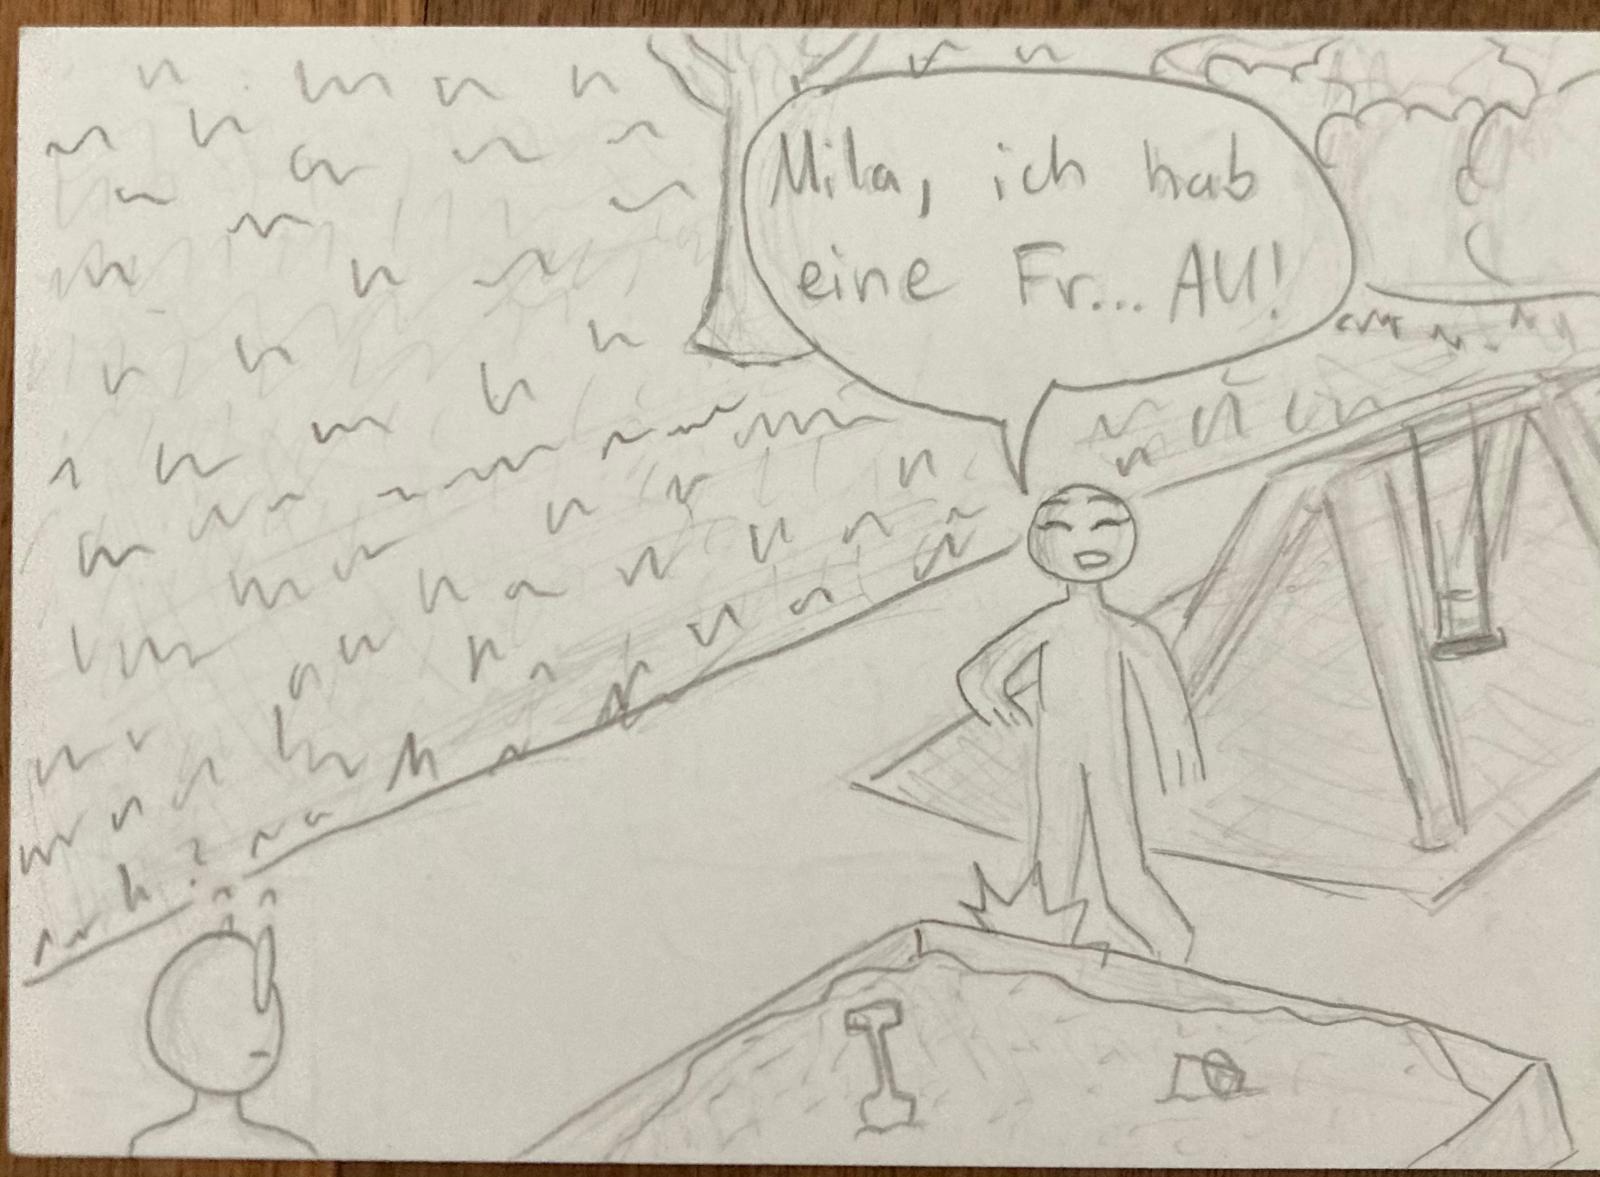 Mila, ich hab
eine Fr... AU!